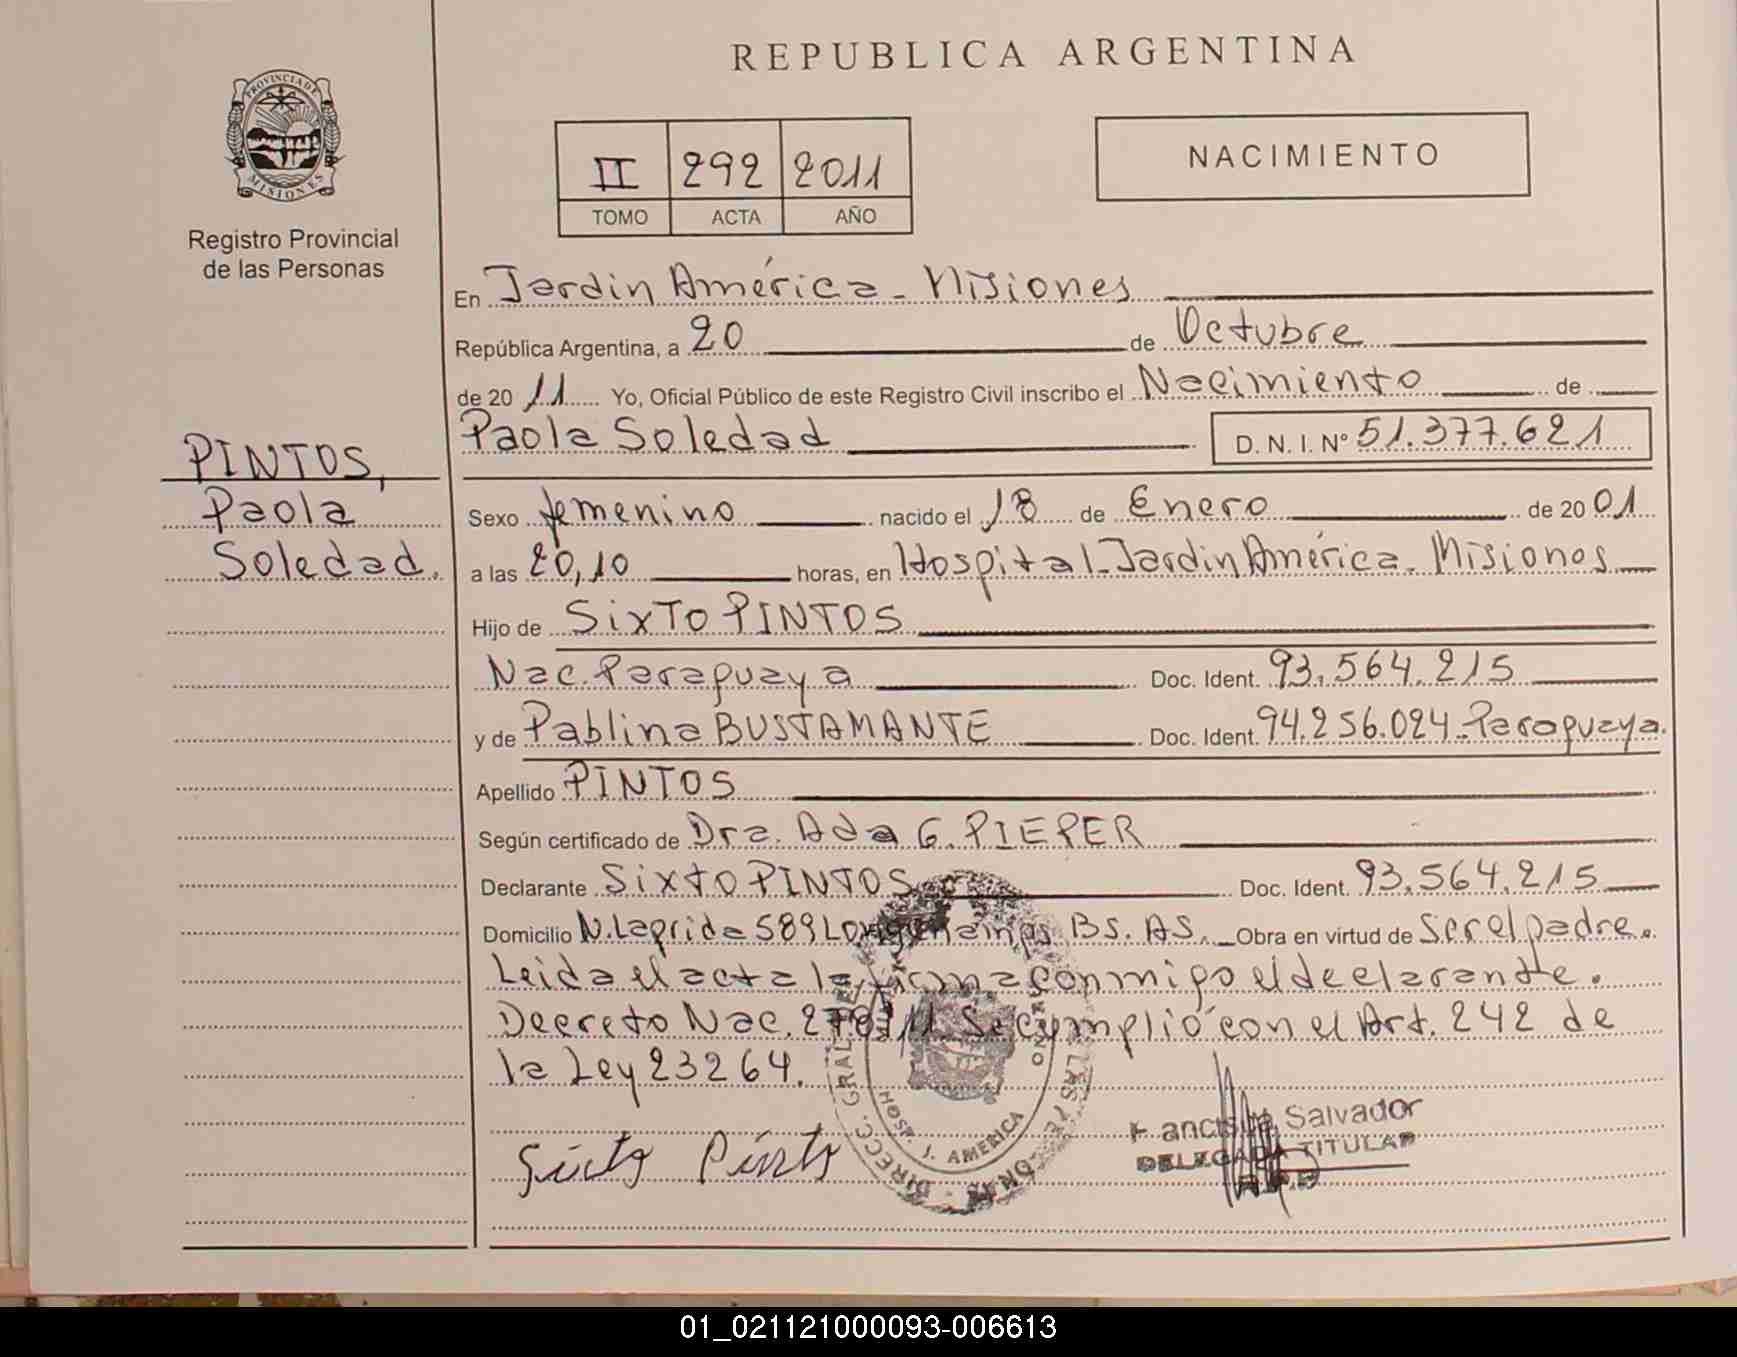 REPUBLICA ARGENTINA
PROVINCIA DE
MISIONES
Registro Provincial
de las Personas
II 292 2011
TOMO ACTA AÑO
NACIMIENTO
En Jardin América - Misiones
República Argentina, a 20 de Octubre
de 20 11 Yo, Oficial Público de este Registro Civil inscribo el Nacimiento de
Paola Soledad D. N. I. Nº 51.377.621
PINTOS,
Paola
Soledad.
Sexo femenino nacido el 18 de Enero de 20 01
a las 20,10 horas, en Hospital - Jardin América - Misiones
Hijo de Sixto PINTOS
Nac. Paraguaya Doc. Ident. 93.564.215
y de Pablina BUSTAMANTE Doc. Ident. 94.256.024 - Paraguaya.
Apellido PINTOS
Según certificado de Dra. Ada G. PIEPER
Declarante Sixto PINTOS Doc. Ident. 93.564.215
Domicilio N. Laprida 589 Longchamps Bs. AS. Obra en virtud de Ser el padre.
Leida el acta la firma conmigo el declarante.
Decreto Nac. Se cumplió con el Art. 242 de
la Ley 23264.
Sixto Pinto
DIRECC. GRAL. DE LAS PERSONAS
HOSP. J. AMERICA
Salvador
DELEGADA TITULAR
01_021121000093-006613